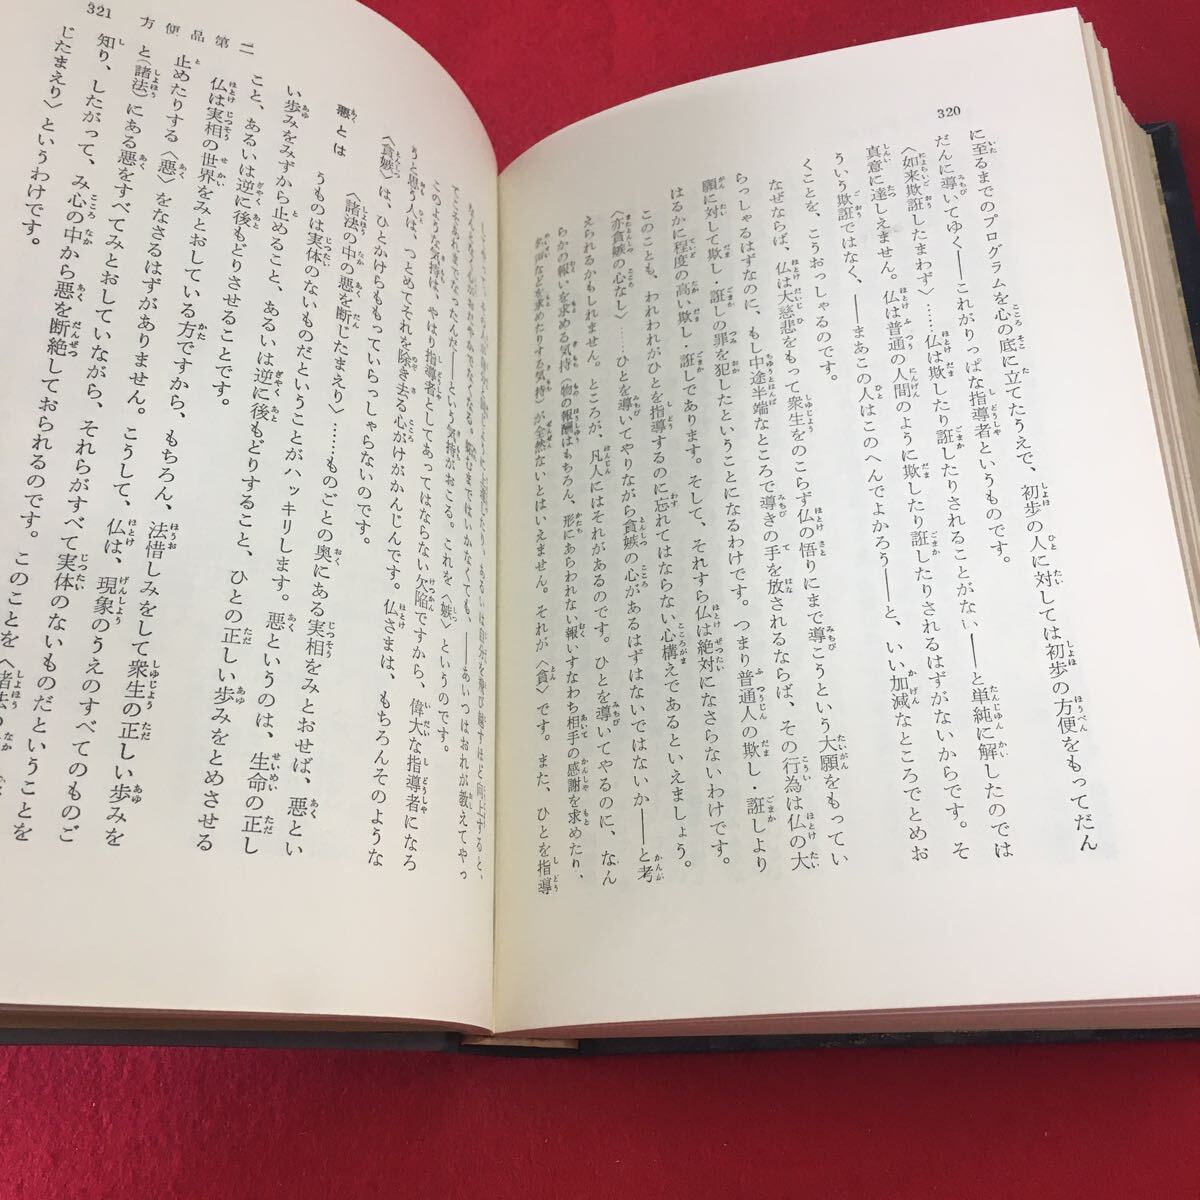 320
に至るまでのプログラムを心の底に立てたうえで、初歩の人に対しては初歩の方便をもってだん
だんに導いてゆく――これがりっぱな指導者というものです。
〈如来欺誑したまわず〉……仏は欺したり誑したりされることがない――と単純に解したのでは
真意に達しえません。仏は普通の人間のように欺したり誑したりされるはずがないからです。そ
ういう欺誑ではなく、――まあこの人はこのへんでよかろう――と、いい加減なところでとめお
くことを、こうおっしゃるのです。
なぜならば、仏は大慈悲をもって衆生をのこらず仏の悟りにまで導こうという大願をもってい
らっしゃるはずなのに、もし中途半端なところで導きの手を放されるならば、その行為は仏の大
願に対して欺し・誑しの罪を犯したということになるわけです。つまり普通人の欺し・誑しより
はるかに程度の高い欺し・誑しであります。そして、それすら仏は絶対になさらないわけです。
このことも、われわれがひとを指導するのに忘れてはならない心構えであるといえましょう。
〈亦貪嫉の心なし〉……ひとを導いてやりながら貪嫉の心があるはずはないではないか――と考
えられるかもしれません。ところが、凡人にはそれがあるのです。ひとを導いてやるのに、なん
らかの報いを求める気持（物の報酬はもちろん、形にあらわれない報いすなわち相手の感謝を求めたり、
名声などを求めたりする気持）が全然ないとはいえません。それが〈貪〉です。また、ひとを指導
321 方便品第二
なんとなく心がおだやかでなくなる。妬むまではいかなくても、――あいつはおれが教えてやっ
てこそあれまでなったんだ――という気持がおこる。これを〈嫉〉というのです。
このような気持は、やはり指導者としてあってはならない欠陥ですから、偉大な指導者になろ
うと思う人は、つとめてそれを除き去る心がけがかんじんです。仏さまは、もちろんそのような
〈貪嫉〉は、ひとかけらももっていらっしゃらないのです。
悪とは
〈諸法の中の悪を断じたまえり〉……ものごとの奥にある実相をみとおせば、悪とい
うものは実体のないものだということがハッキリします。悪というのは、生命の正し
い歩みをみずから止めること、あるいは逆に後もどりすること、ひとの正しい歩みをとめさせる
こと、あるいは逆に後もどりさせることです。
仏は実相の世界をみとおしている方ですから、もちろん、法惜しみをして衆生の正しい歩みを
止めたりする〈悪〉をなさるはずがありません。こうして、仏は、現象のうえのすべてのものご
と（諸法）にある悪をすべてみとおしていながら、それらがすべて実体のないものだということを
知り、したがって、み心の中から悪を断絶しておられるのです。このことを〈諸法の
じたまえり〉というわけです。